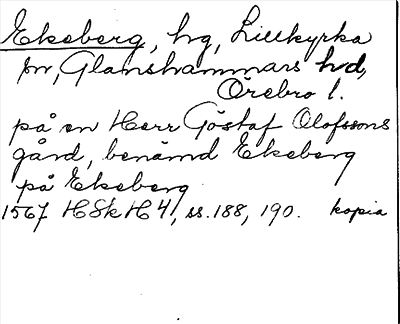 Ekeberg, hg, Lillkyrka
sn, Glanshammars hd,
Örebro l.
på en Herr Göstaf Olofssons
gård, benämd Ekeberg
på Ekeberg
1567 HSkH 4, ss. 188, 190. kopia